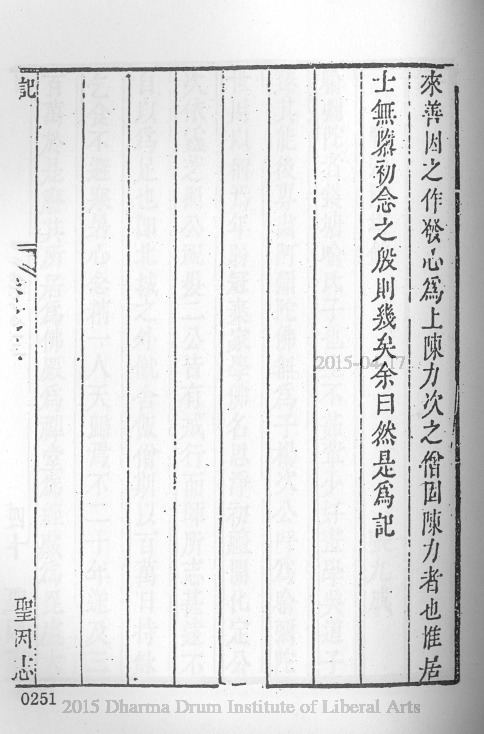 來善因之作發心爲上陳力次之僧固陳力者也惟居
士無隳初念之殷則幾矣余曰然是爲記
記
聖因志
2015-04-17
0251
2015 Dharma Drum Institute of Liberal Arts